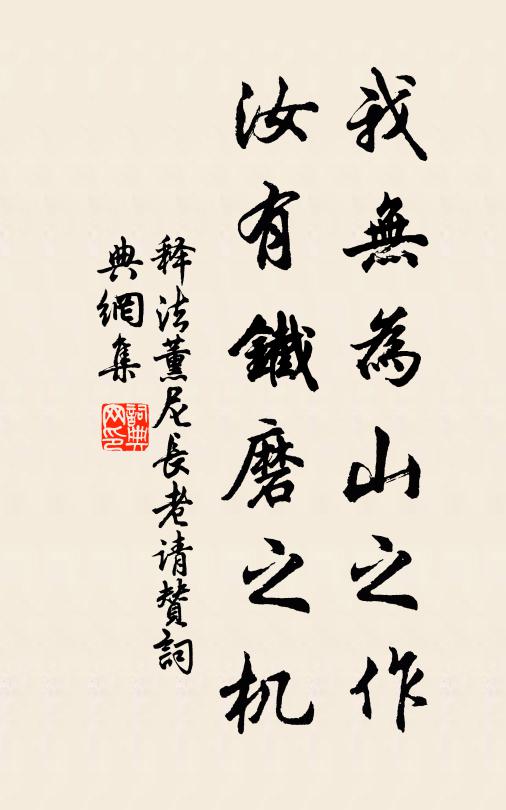 我無為山之作
汝有鐵磨之机
释法薰尼長老请赞詞
典網集
詞典
网印